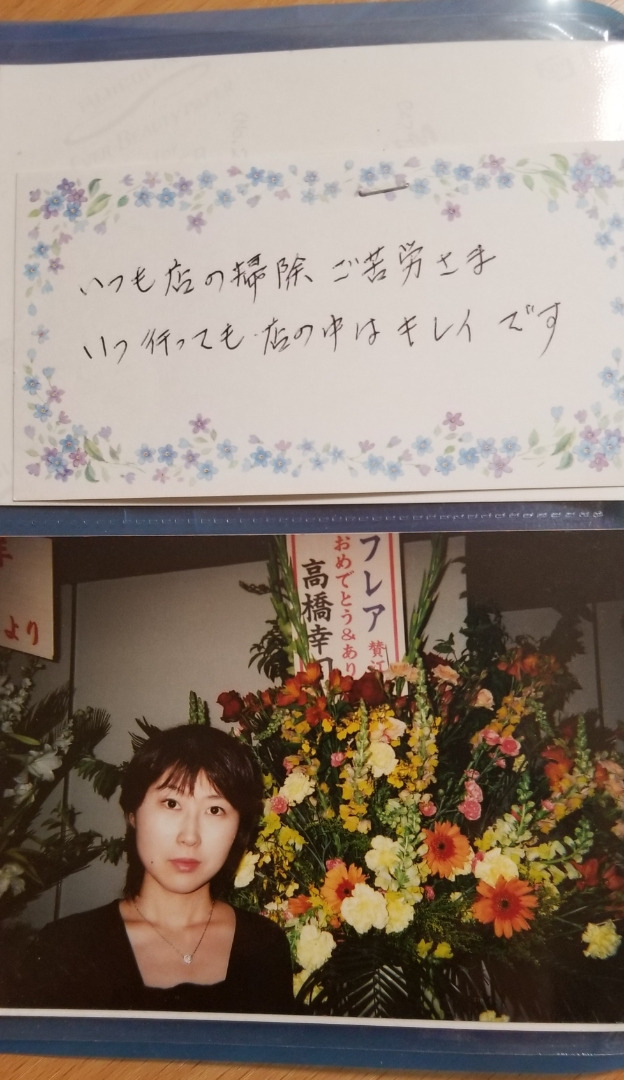 いつも店の掃除 ご苦労さま
いつ行っても店の中はキレイです
より
フレア
賛江
おめでとう&あり
高橋幸